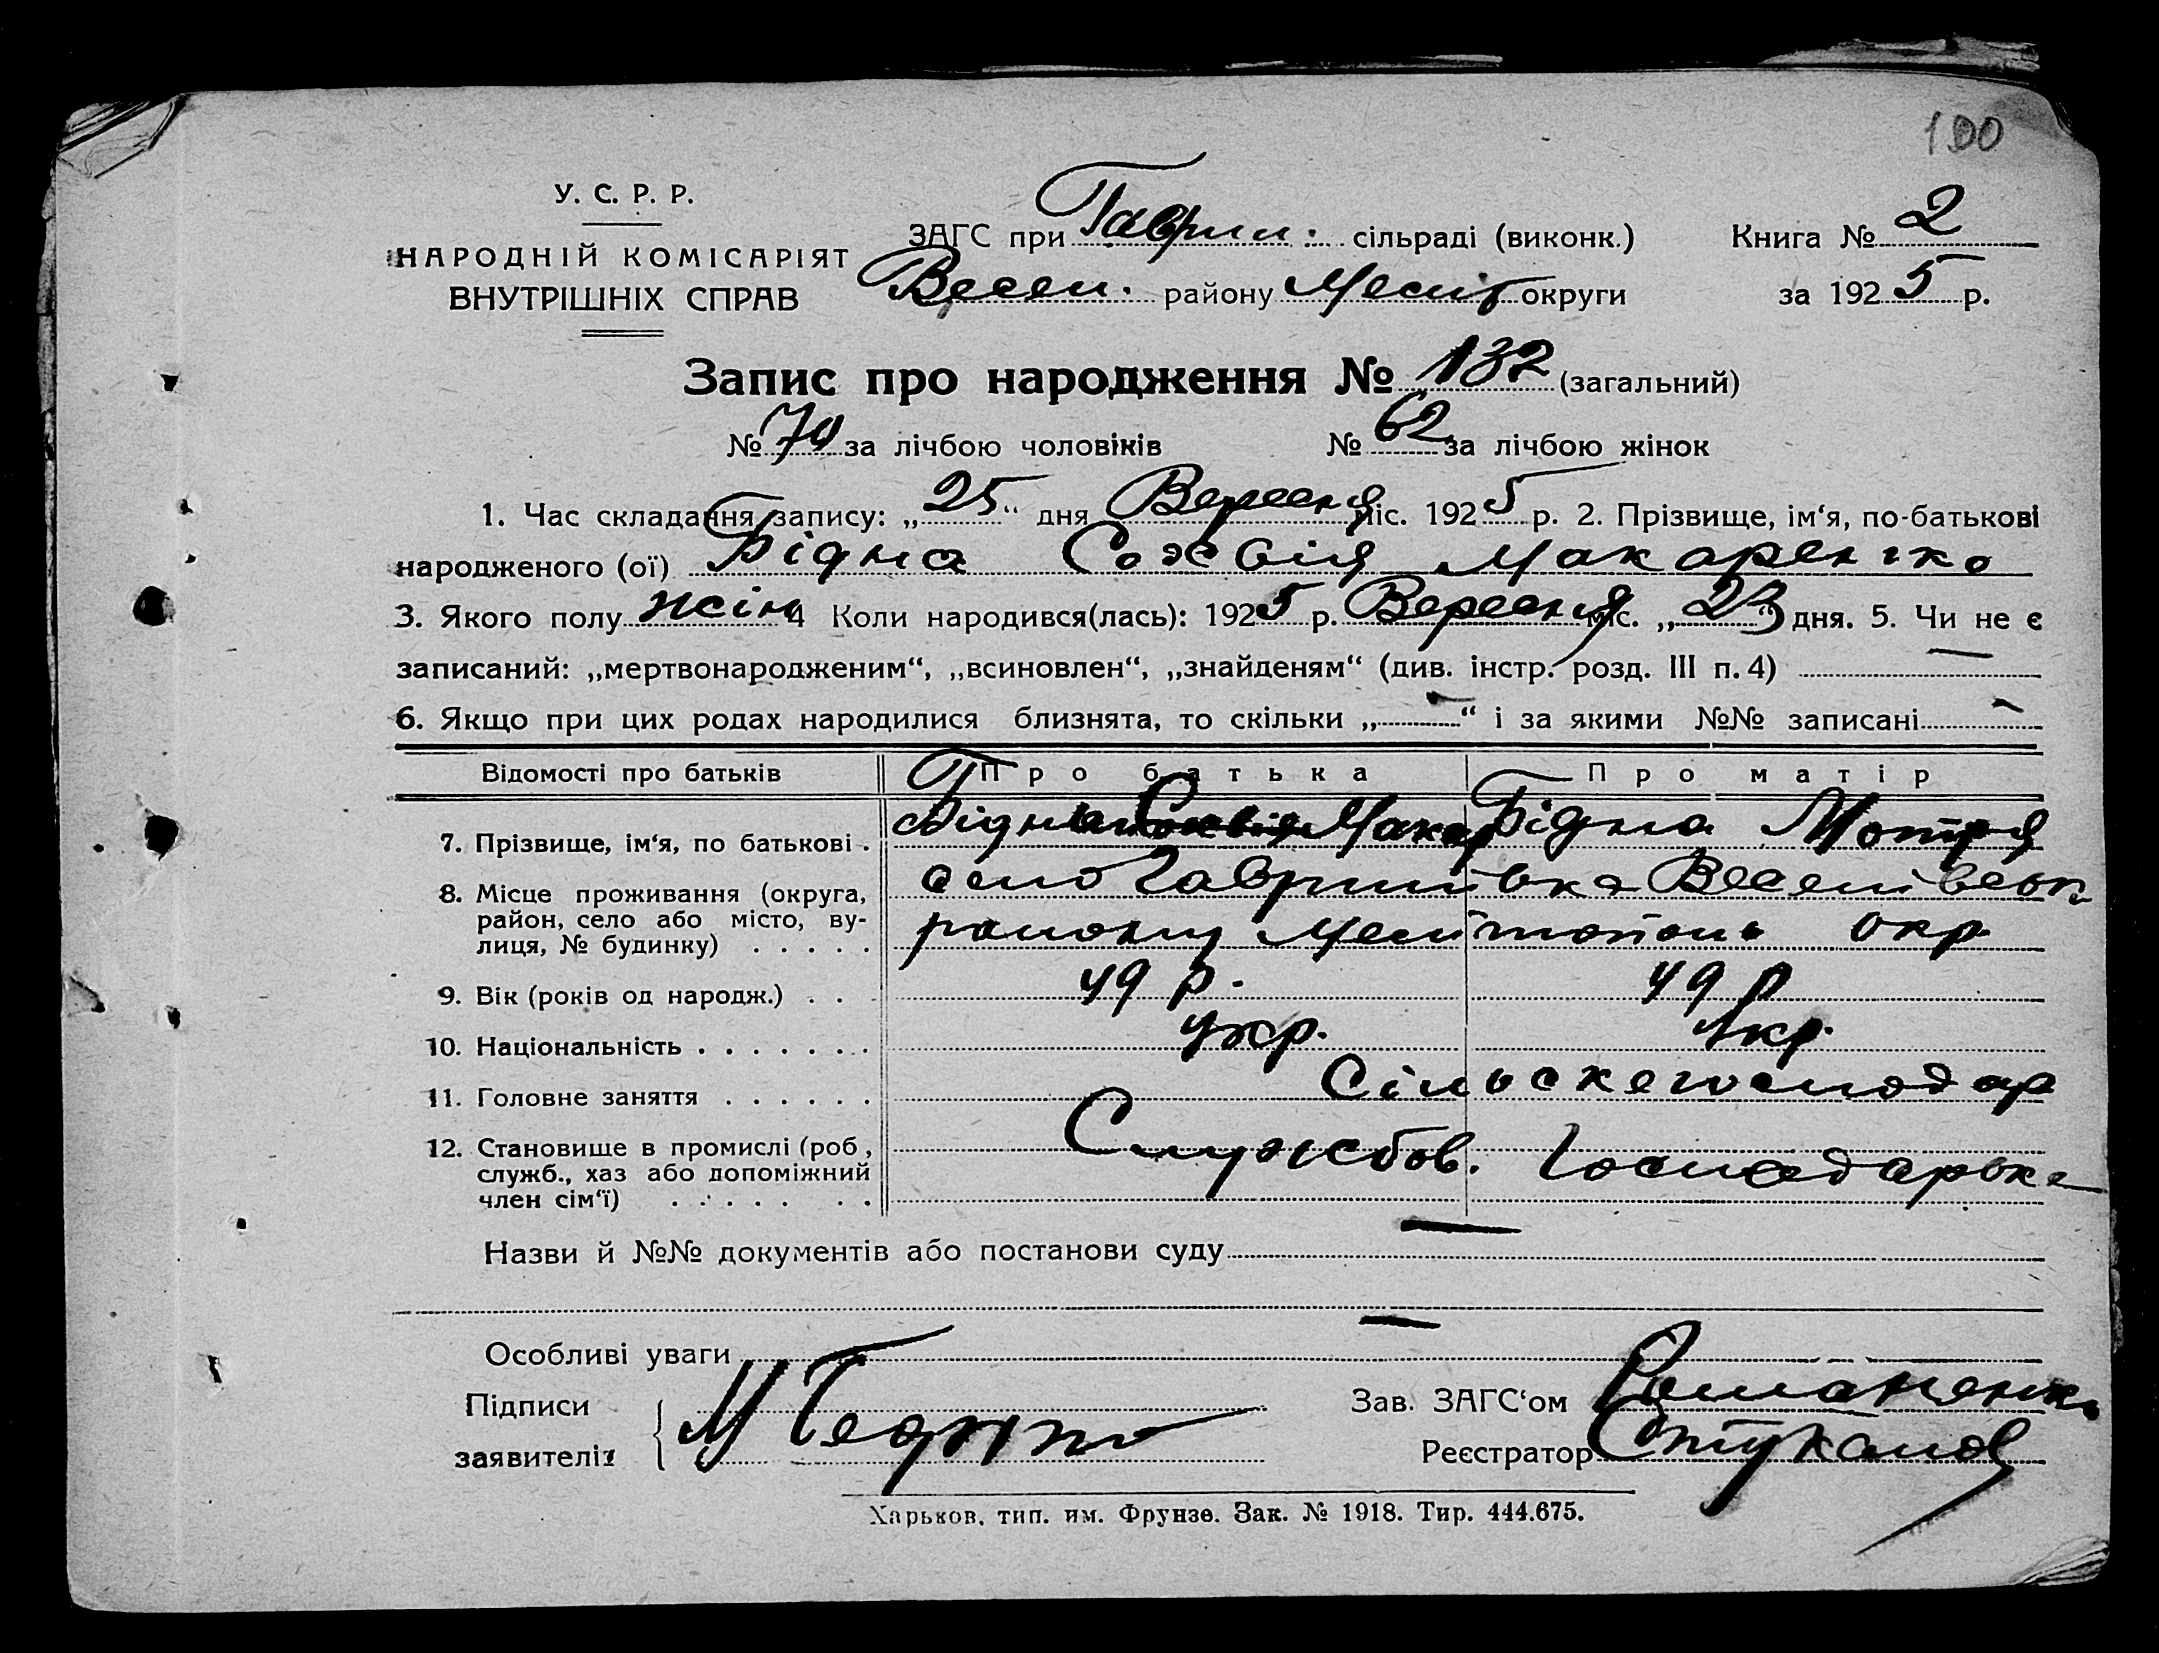 100
У. С. Р. Р.
НАРОДНІЙ КОМІСАРІЯТ
ВНУТРІШНІХ СПРАВ
ЗАГС при Гаврил. сільраді (виконк.)
Весел. району Меліт округи
Книга № 2
за 1925 р.
Запис про народження № 132 (загальний)
№ 70 за лічбою чоловіків № 62 за лічбою жінок
1. Час складання запису: „25“ дня Вересня міс. 1925 р. 2. Прізвище, ім‘я, по-батькові
народженого (ої) Бідна Сохвія Макаренко
3. Якого полу жін 4 Коли народився(лась): 1925 р. Вересня міс. „23“ дня. 5. Чи не є
записаний: „мертвонародженим“, „всиновлен“, „знайденям“ (див. інстр. розд. III п. 4) —
6. Якщо при цих родах народилися близнята, то скільки „—“ і за якими №№ записані —
Відомості про батьків Про батька Про матір
7. Прізвище, ім‘я, по батькові . Макар Бідна Мотря
8. Місце проживання (округа, район, село або місто, ву-лиця, № будинку) . . . . . село Гаврилівка Веселівськ
району Мелітополь окр.
9. Вік (років од народж.) . . . 49 р. 49 р
10. Національність . . . . . . . укр. Укр.
11. Головне заняття . . . . . . Сільскегосподар
12. Становище в промислі (роб, служб., хаз або допоміжний член сім‘ї) . . . . . . . Службов. Господарка
Назви й №№ документів або постанови суду —
Особливі уваги —
Підписи
заявителів
М
Зав. ЗАГС‘ом
Реєстратор Стукалов
Харьков, тип. им. Фрунзе. Зак. № 1918. Тир. 444.675.